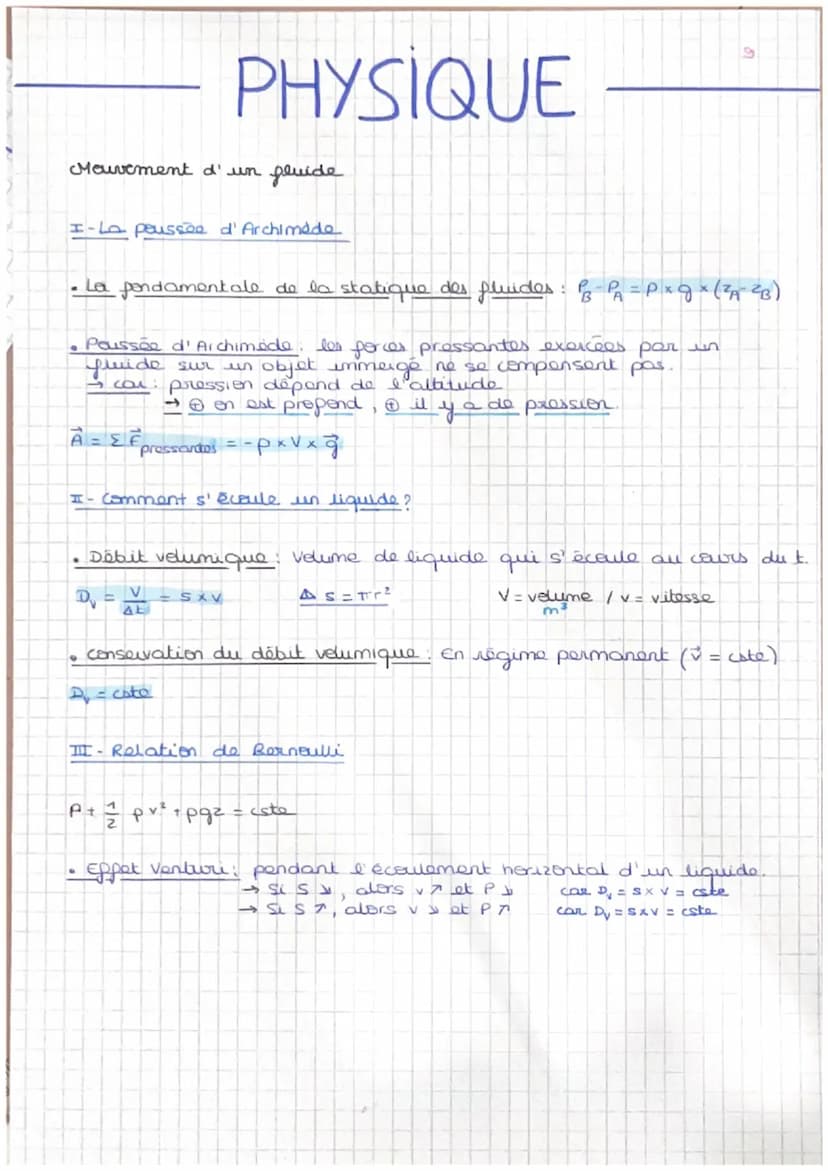 9
PHYSIQUE
Mouvement d'un fluide
I - La poussée d'Archimède
• Loi fondamentale de la statique des fluides : P_B - P_A = ρ × g × (z_A - z_B)
• Poussée d'Archimède : les forces pressantes exercées par un
fluide sur un objet immergé ne se compensent pas.
→ car : pression dépend de l'altitude
→ ⊕ on est profond, ⊕ il y a de pression.
A⃗ = Σ F⃗ pressantes = - ρ × V × g⃗
II - Comment s'écoule un liquide ?
• Débit volumique : Volume de liquide qui s'écoule au cours du t.
D_v = V/Δt = S × v    ⚠ S = πr²    V = volume / v = vitesse
m³
• Conservation du débit volumique : En régime permanent (v⃗ = cste)
D_v = cste
III - Relation de Bernoulli
P + 1/2 ρv² + ρgz = cste
• Effet Venturi : pendant l'écoulement horizontal d'un liquide.
→ Si S ↘, alors v ↗ et P ↘    car D_v = S × v = cste
→ Si S ↗, alors v ↘ et P ↗    car D_v = S × v = cste